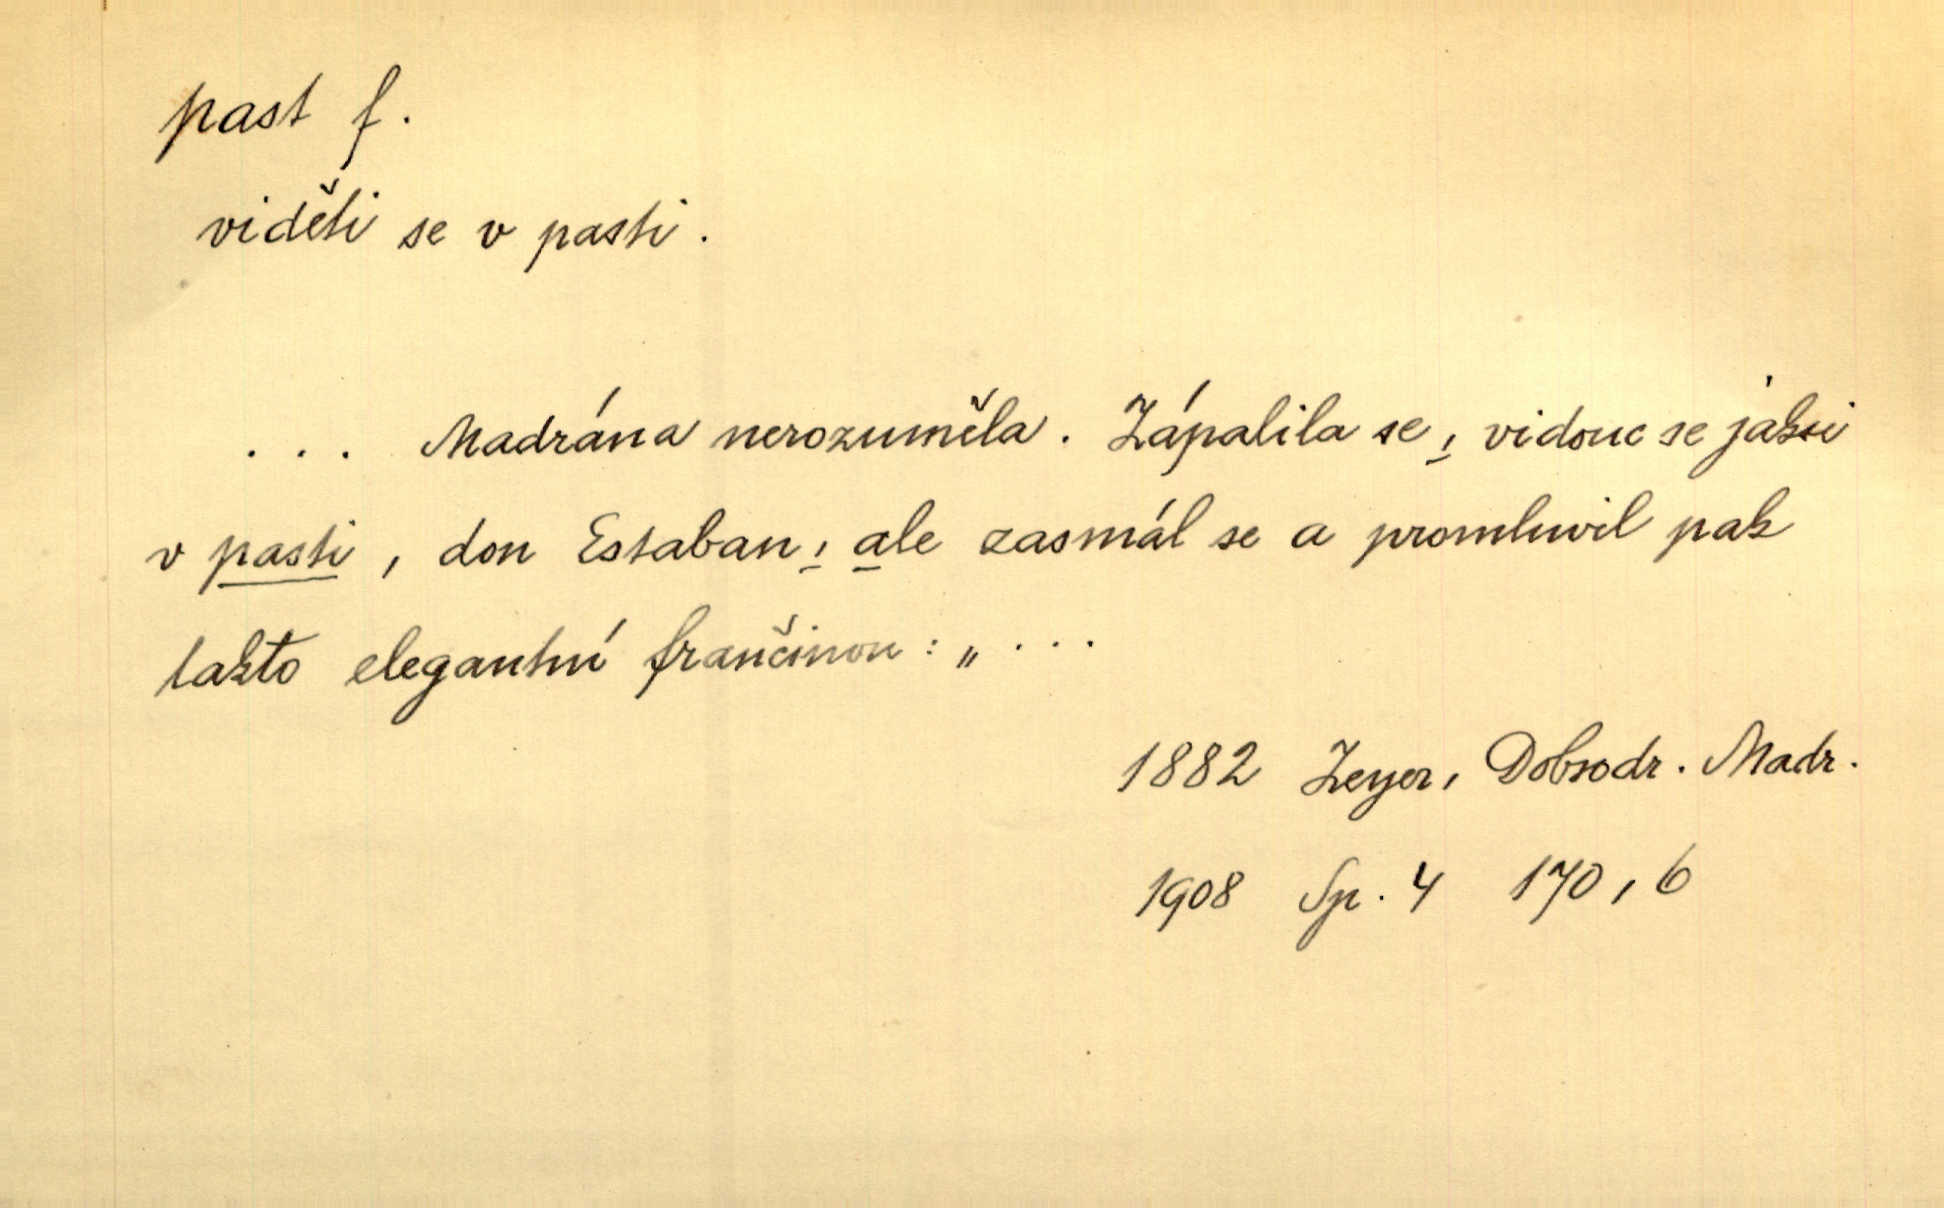 past f.
viděti se v pasti.
... Madrána nerozuměla. Zápalila se, vidouc se jaksi
v pasti, don Estaban, ale zasmál se a promluvil pak
takto elegantní frančinou: „ ...
1882 Zeyer, Dobrodr. Madr.
1908 Sp. 4 170, 6